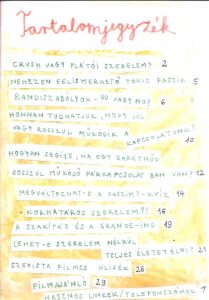 Tartalomjegyzék
CRUSH VAGY PLÁTÓI SZERELEM? 2
NEHEZEN FELISMERHETŐ TOXIC FASZIK 5
RANDISZABÁLYOK - DO VAGY NO? 6
HONNAN TUDHATJUK, HOGY JÓL
VAGY ROSSZUL MŰKÖDIK A KAPCSOLATUNK? 10
HOGYAN SEGÍTS, HA EGY BARÁTNŐD
ROSSZUL MŰKÖDŐ PÁRKAPCSOLATBAN VAN? 12
MEGVÁLTOZHAT-E A FASZIM? - KVÍZ 14
KORHATÁROS SZERELEM?! 16
A SZAKÍTÁS ÉS A GRANDE-IND 19
LEHET-E SZERELEM NÉLKÜL
TELJES ÉLETET ÉLNI? 21
SZEXISTA FILMES KLISÉK 26
FILMAJÁNLÓ 29
HASZNOS LINKEK/TELEFONSZÁMOK